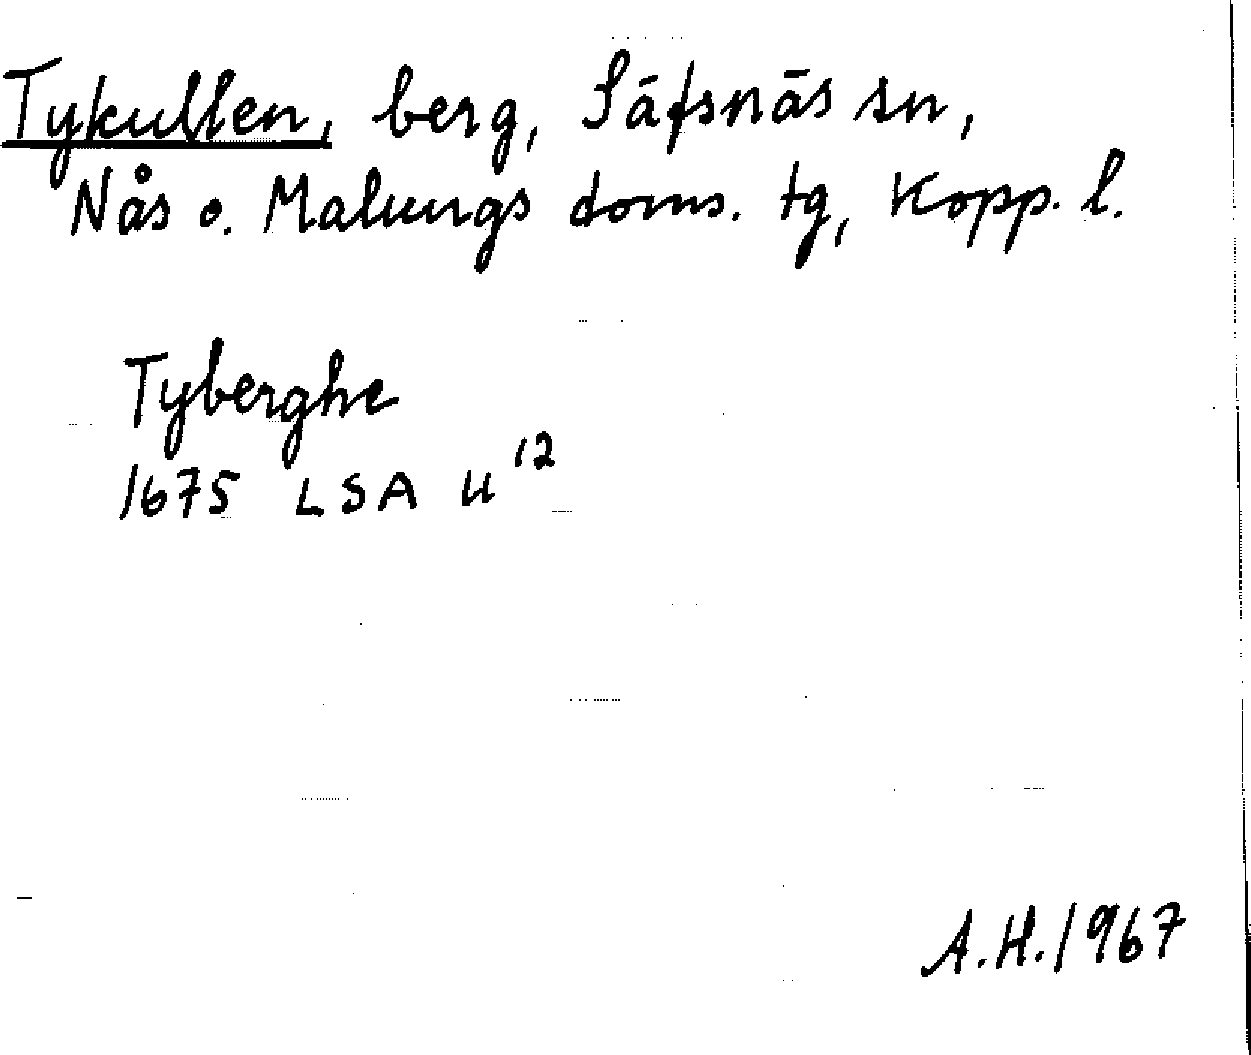 Tykullen, berg, Säfsnäs sn,
Nås o. Malungs doms. tg, Kopp. l.
Tyberghe
1675 LSA U 12
A.H. 1967